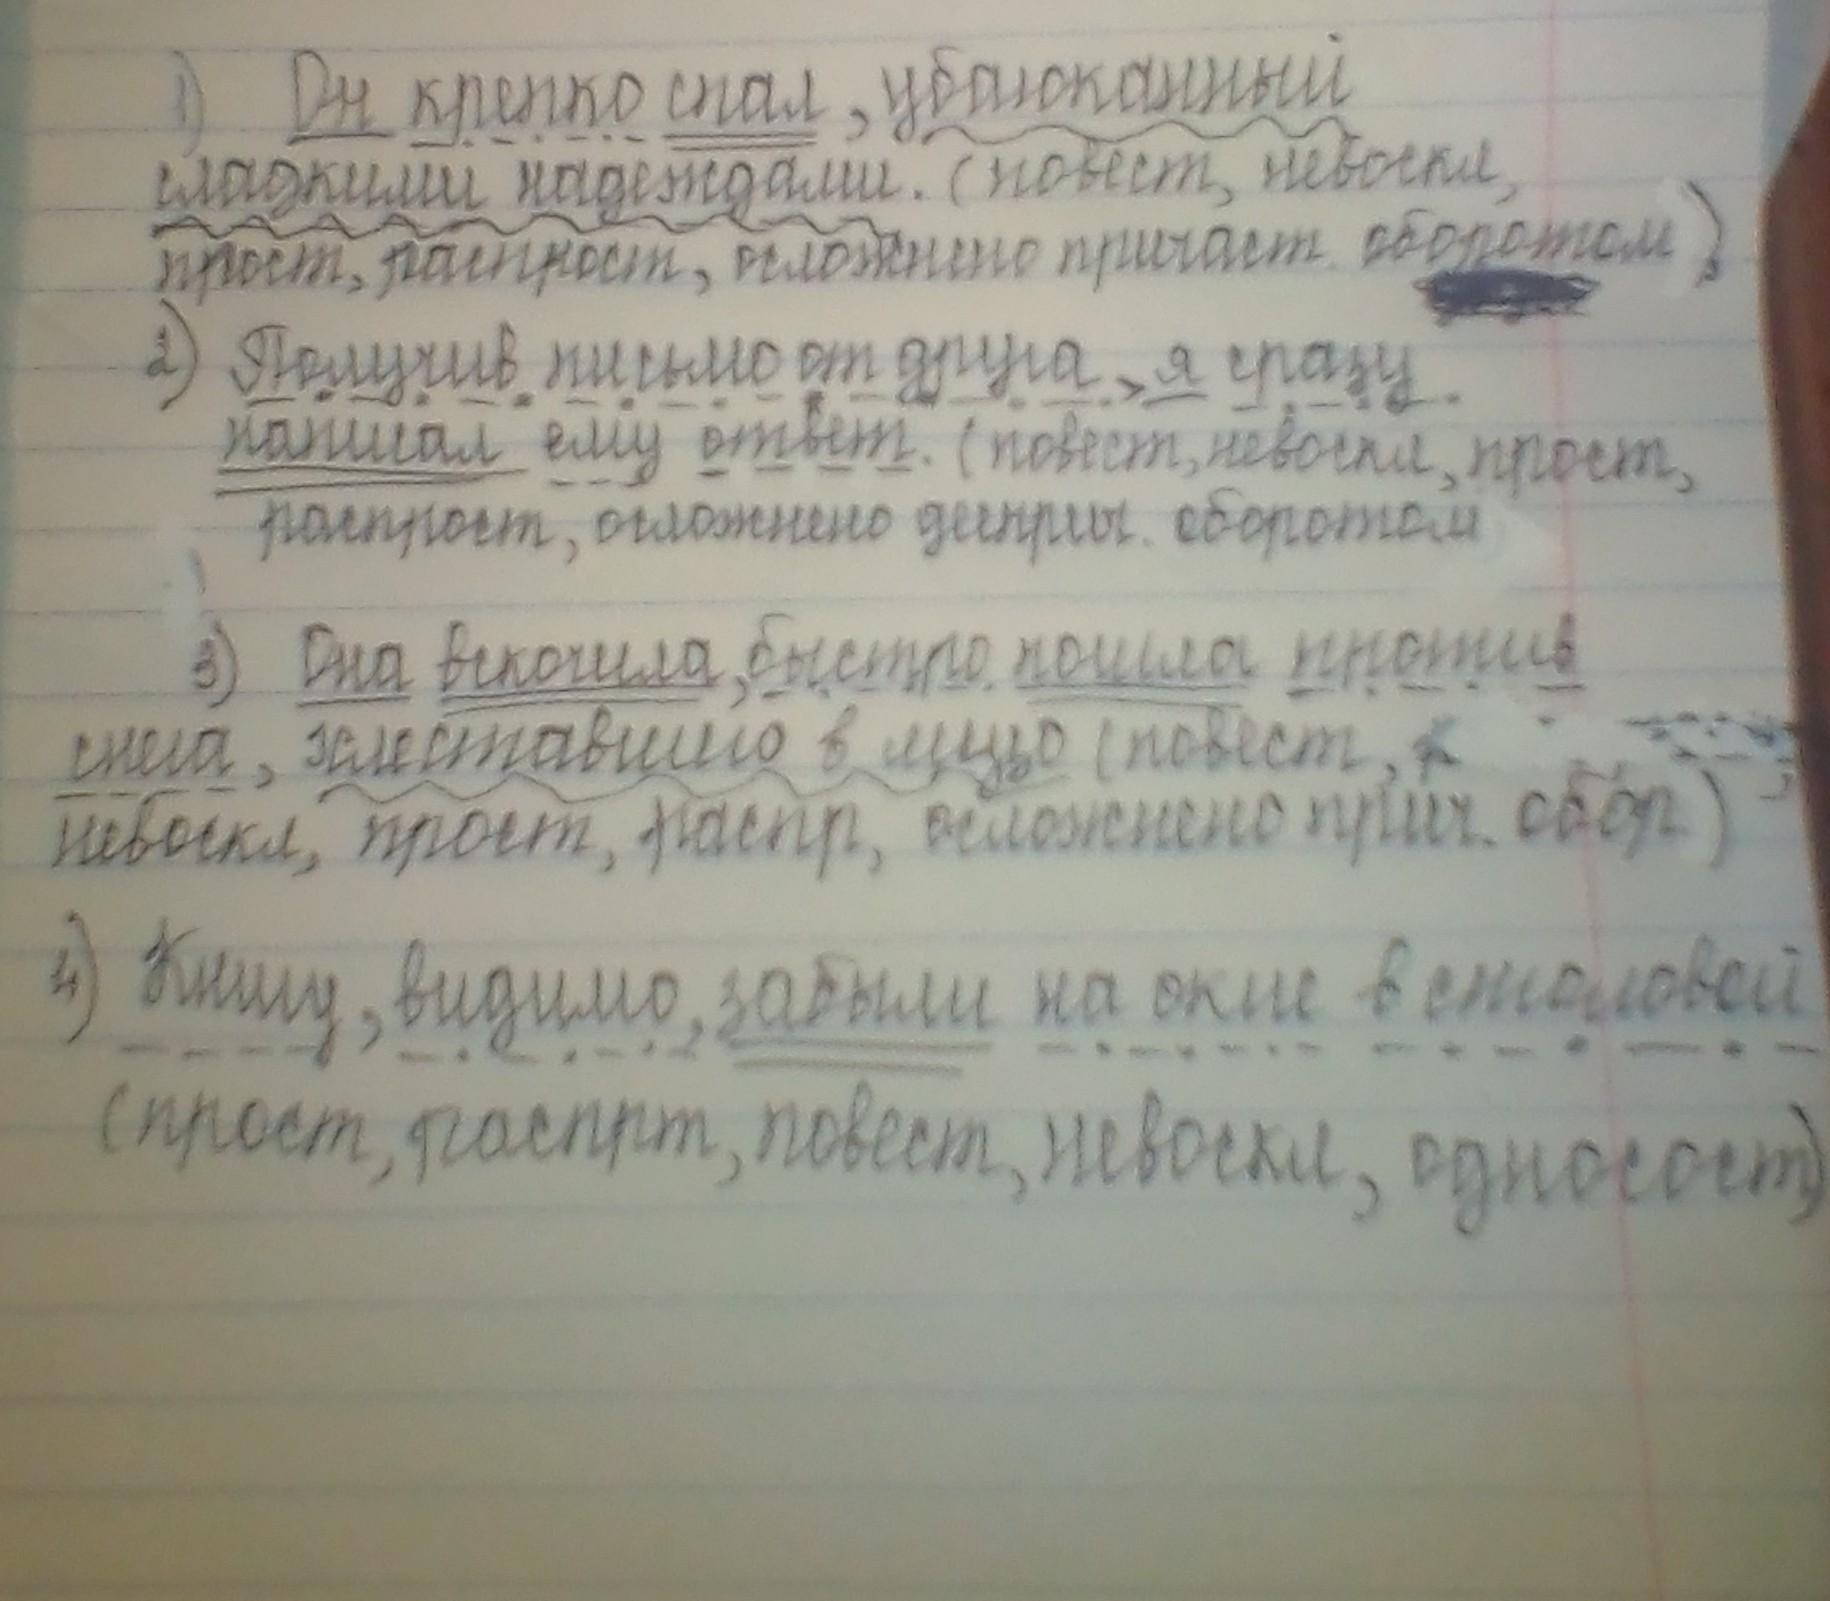 1) Он крепко спал, убаюканный
сладкими надеждами. (повест, невоскл,
прост, распрост, осложнено причаст. оборотом)
2) Получив письмо от друга, я сразу
написал ему ответ. (повест, невоскл, прост,
распрост, осложнено дееприч. оборотом
3) Она вскочила, быстро пошла против
снега, хлеставшего в лицо (повест,
невоскл, прост, распр, осложнено прич. обор)
4) Книгу, видимо, забыли на окне в столовой
(прост, распрт, повест, невоскл, односост)